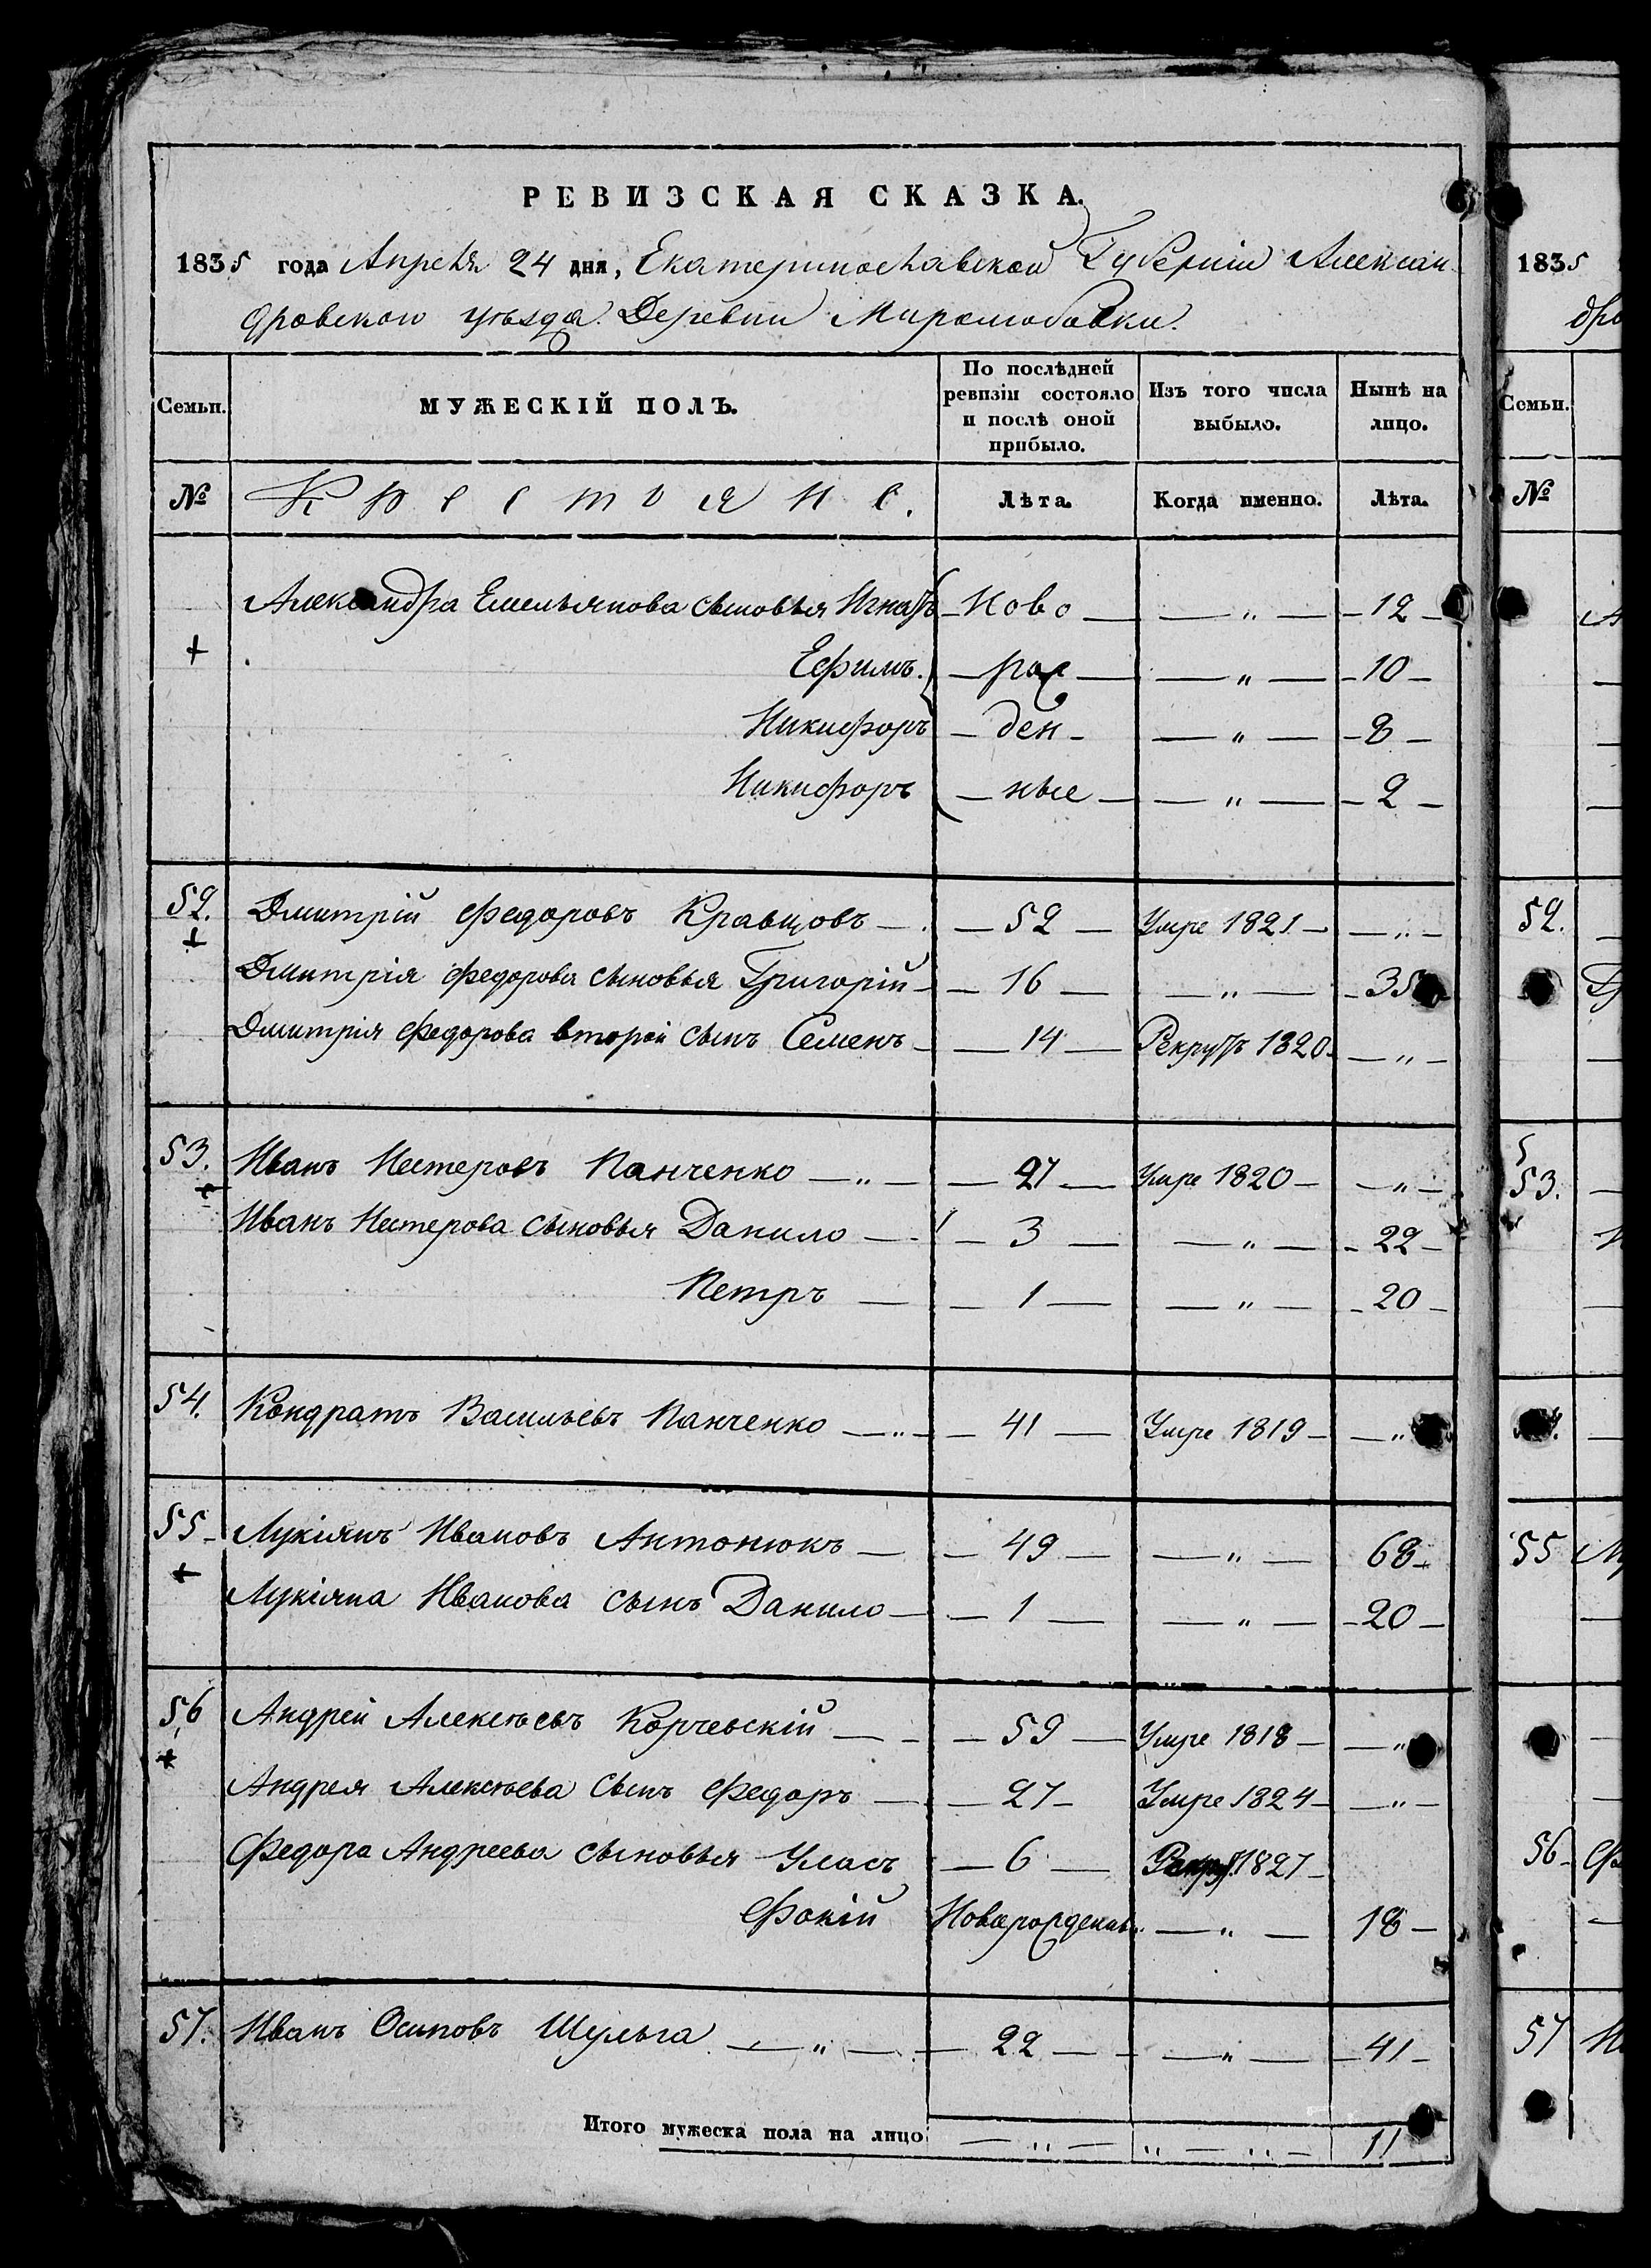 РЕВИЗСКАЯ СКАЗКА.
1835 года Апреля 24 дня, Екатеринославской Губерніи Алексан
дровского уѣзда. Деревни Миролюбовки.
Семьи. МУЖЕСКІЙ ПОЛЪ. По послѣдней ревизіи состояло и послѣ оной прибыло. Изъ того числа выбыло. Нынѣ на лицо.
№ Крестьяне. Лѣта. Когда именно. Лѣта.
Александра Емельянова сыновья Игнатъ — Ново — — „ — — 12 —
+ Ефимъ. — рож — — „ — — 10 —
Никифоръ — ден — — „ — — 8 —
Никифоръ — ные — — „ — — 2 —
52. Дмитрій Федоровъ Кравцовъ — — 52 — Умре 1821 — — „ —
+ Дмитрія Федорова сыновья Григорій — — 16 — — „ — — 35
Дмитрія Федорова второй сынъ Семенъ — — 14 — Рекрутъ 1820 — — „ —
53. Иванъ Нестеровъ Панченко — „ — — 27 — Умре 1820 — — „ —
+ Иванъ Нестерова сыновья Данило — — 3 — — „ — — 22 —
Петръ — — 1 — — „ — — 20 —
54. Кондратъ Васильевъ Панченко — „ — — 41 — Умре 1819 — — „
55 — Лукіянъ Ивановъ Антонюкъ — — 49 — — „ — 68 —
+ Лукіяна Иванова сынъ Данило — — 1 — — „ — — 20 —
56 Андрей Алексѣевъ Корчевскій — — 59 — Умре 1818 — — „
+ Андрея Алексѣева сынъ Федоръ — — 27 — Умре 1824 — — „ —
Федора Андреева сыновья Уласъ — 6 — Рекру. 1827 —
Фокій Новорожденъ. — „ — 18 —
57. Иванъ Осиповъ Шульга — „ — — 22 — — „ — — 41 —
Итого мужеска пола на лицо — „ — „ — „ — 11
1835
дро
Семьи.
№
52.
53.
55
56 —
57